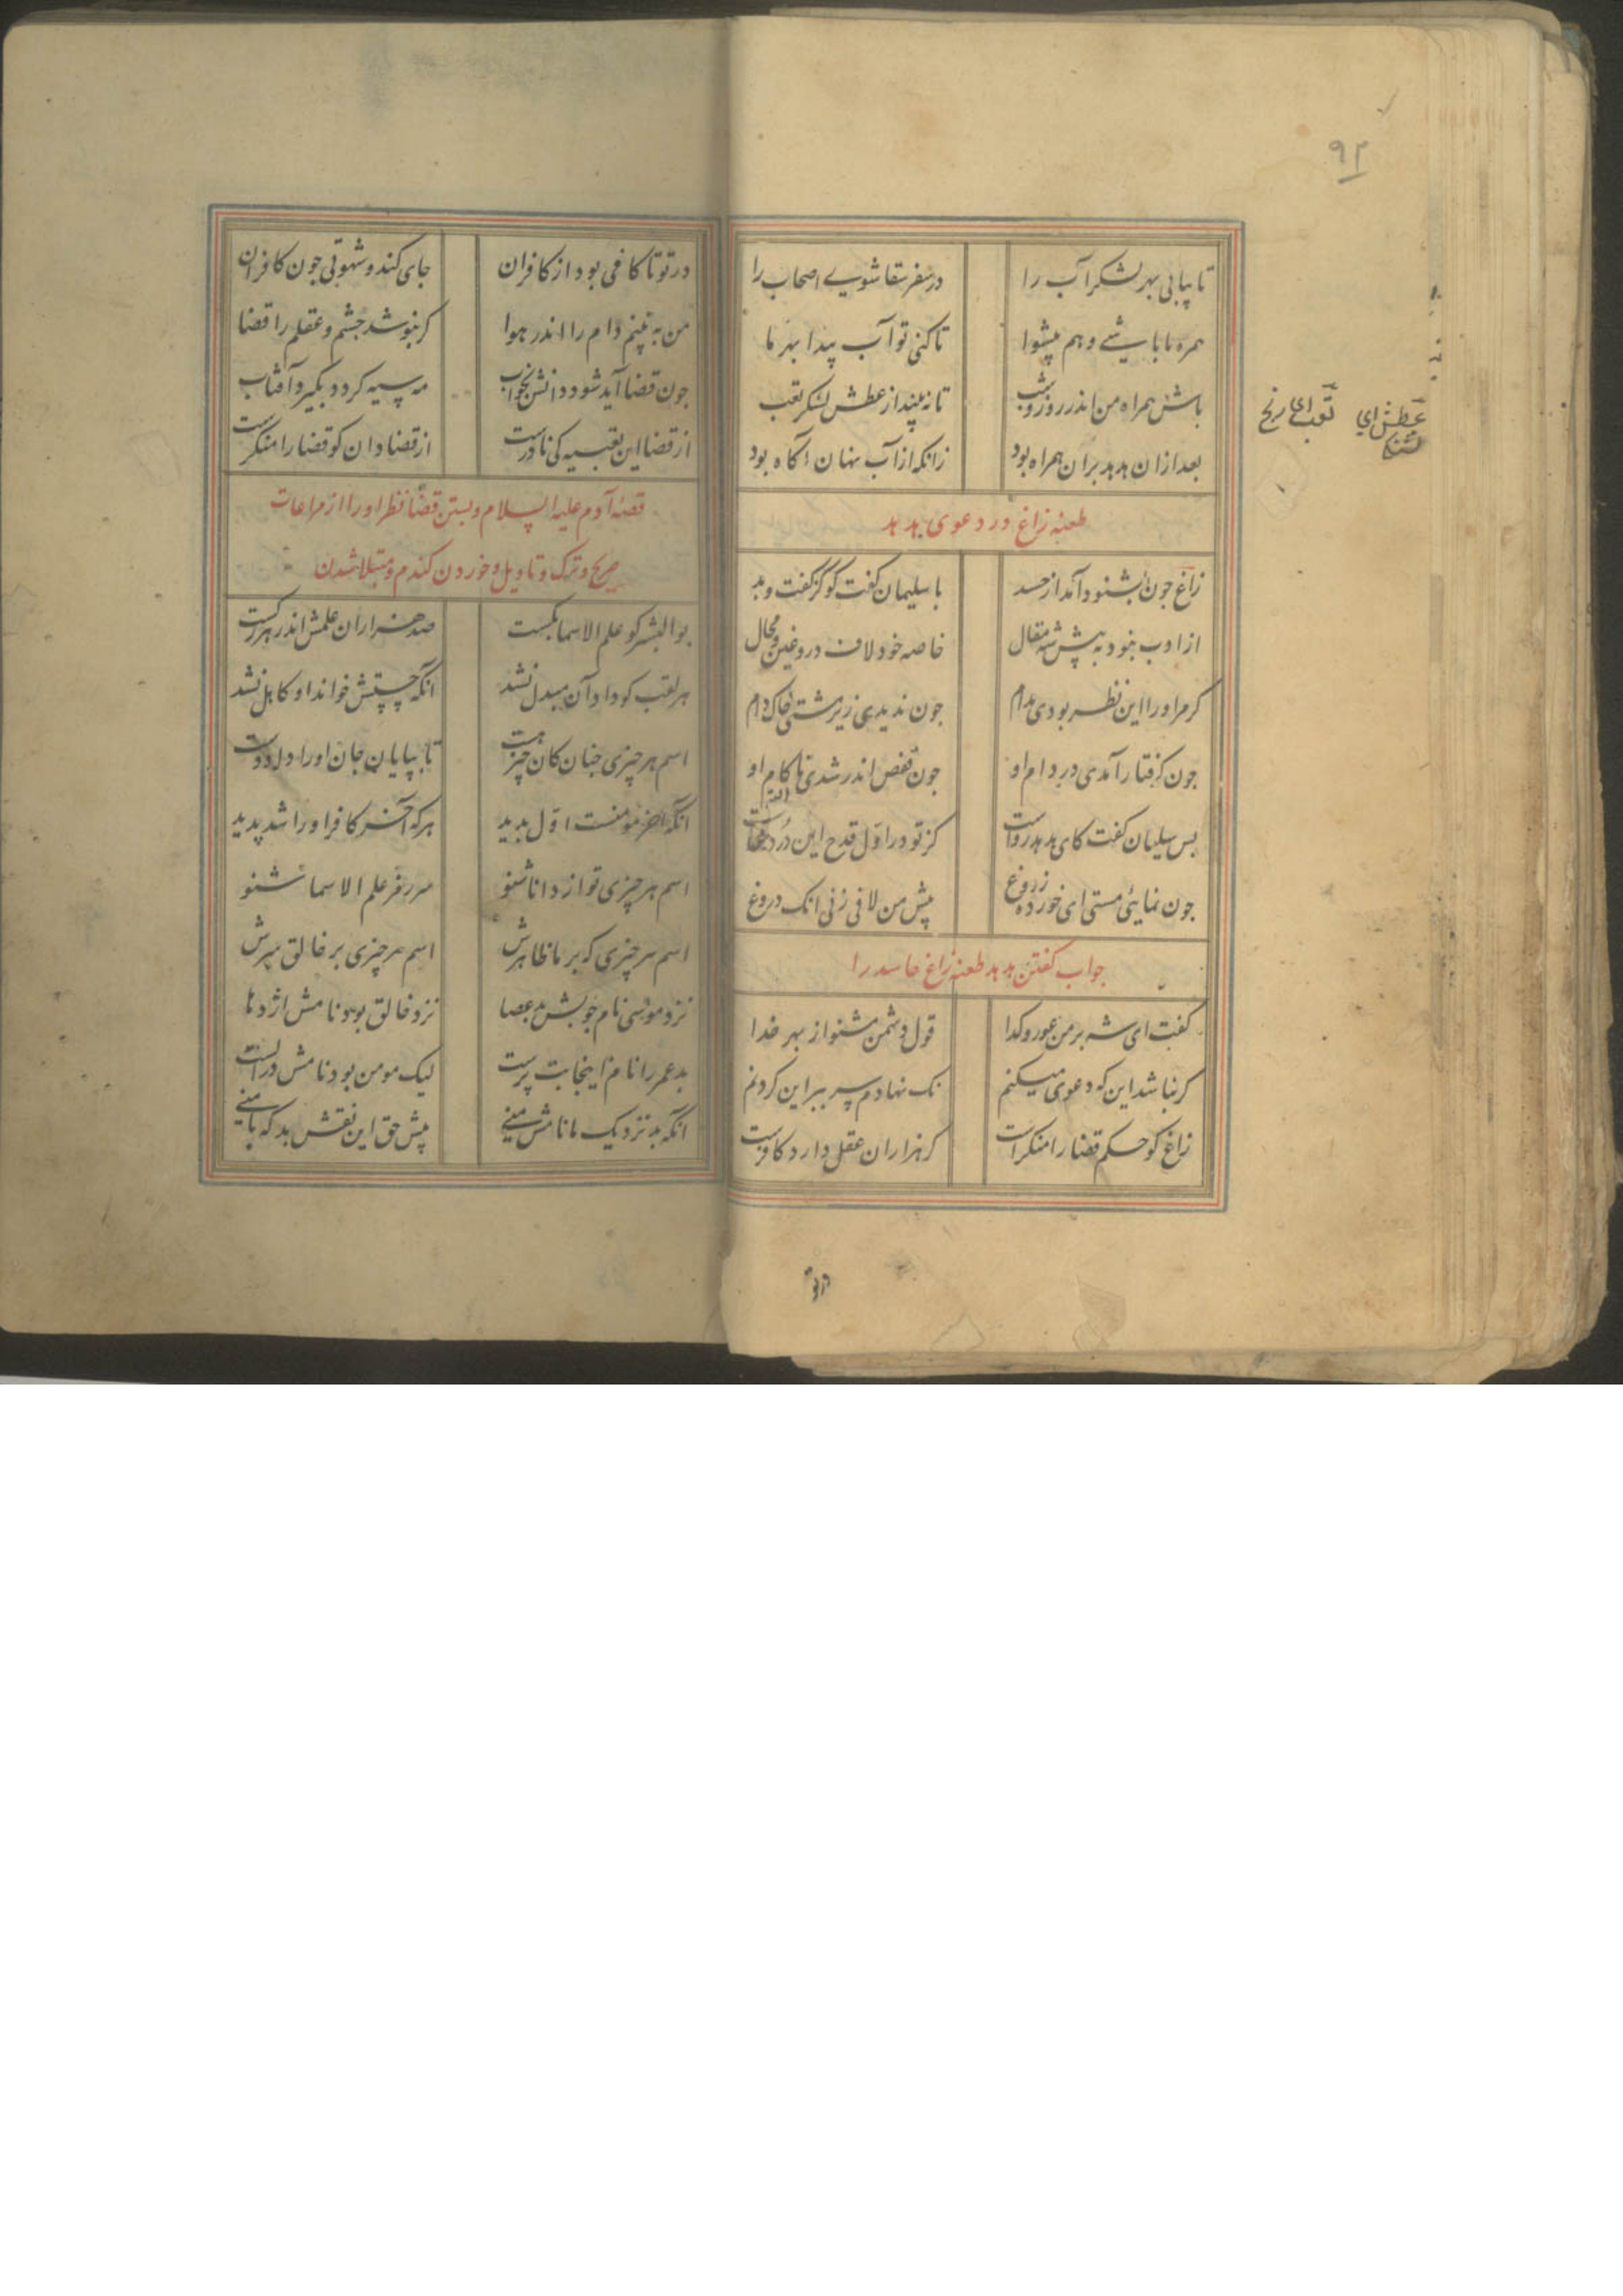 ۹۲
تا بیابی بهر لشکر آب را در سفر سقا شوی اصحاب را
همره ما باشی و هم پیشوا تا کنی تو آب پیدا بهر ما
باش همراه من اندر روز و شب تا نه بیند از عطش لشکر تعب
عطش ای تشنگی تعب ای رنج
بعد ازان هدهد بران همراه بود زانکه از آب نهان آکاه بود
طعنه زاغ در دعوی هدهد
زاغ جون بشنود آمد از حسد با سلیمان کفت کو کژ کفت و بد
از ادب نبود به پیش شه مقال خاصه خود لاف دروغین و محال
کر مر او را این نظر بودی مدام جون ندیدی زیر مشتی خاک دام
جون کرفتار آمدی در دام او جون قفص اندر شدی ناکام او
بس سلیمان کفت کای هدهد رواست کز تو در اول قدح این درد خاست
جون نمایئی مستی ای خورده ز دوغ پیش من لافی زنی آنک دروغ
جواب کفتن هدهد طعنه زاغ حاسد را
کفت ای شه بر من عور و کدا قول دشمن مشنو از بهر خدا
کر نباشد این که دعوی میکنم نک نهادم سر ببر این کردنم
زاغ کو حکم قضا را منکرست کر هزاران عقل دارد کافرست
در تو
در تو تا کافی بود از کافران جای کند و شهوتی جون کاف ران
من به بینم دام را اندر هوا کر نپوشد جشم و عقلم را قضا
جون قضا آید شود دانش بخواب مه سیه کردد بکیرد آفتاب
از قضا این تعبیه کی نادرست از قضا دان کو قضا را منکرست
قصهٔ آدم علیه السلام و بستن قضا نظر او را از مراعات
صریح و ترک و تاویل و خوردن کندم و مبتلا شدن
بو البشر کو علم الاسما بکست صد هزاران علمش اندر هر رکست
هر لقب کو داد آن مبدل نشد انکه چستش خواند او کاهل نشد
اسم هر چیزی جنان کان چیز هست تا بپایان جان او را داد دست
انکه آخر مومنست اول بدید هر که آخر کافر او را شد پدید
اسم هر چیزی تو از دانا شنو سر رمز علم الاسما شنو
اسم هر چیزی که بر ما ظاهرش اسم هر چیزی بر خالق سرش
نزد موسی نام جوبش بد عصا نزد خالق بود نامش اژدها
بد عمر را نام اینجا بت پرست لیک مومن بود نامش در الست
انکه بد نزدیک ما نامش منی پیش حق این نقش بد که با منی